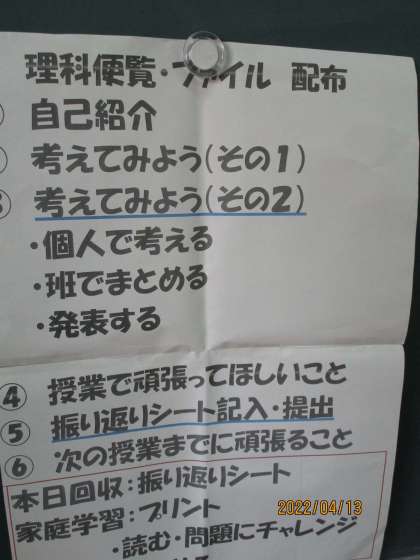 理科便覧・ファイル 配布
自己紹介
考えてみよう(その1)
考えてみよう(その2)
・個人で考える
・班でまとめる
・発表する
④ 授業で頑張ってほしいこと
⑤ 振り返りシート記入・提出
⑥ 次の授業までに頑張ること
本日回収:振り返りシート
家庭学習:プリント
・読む・問題にチャレンジ
2022/04/13